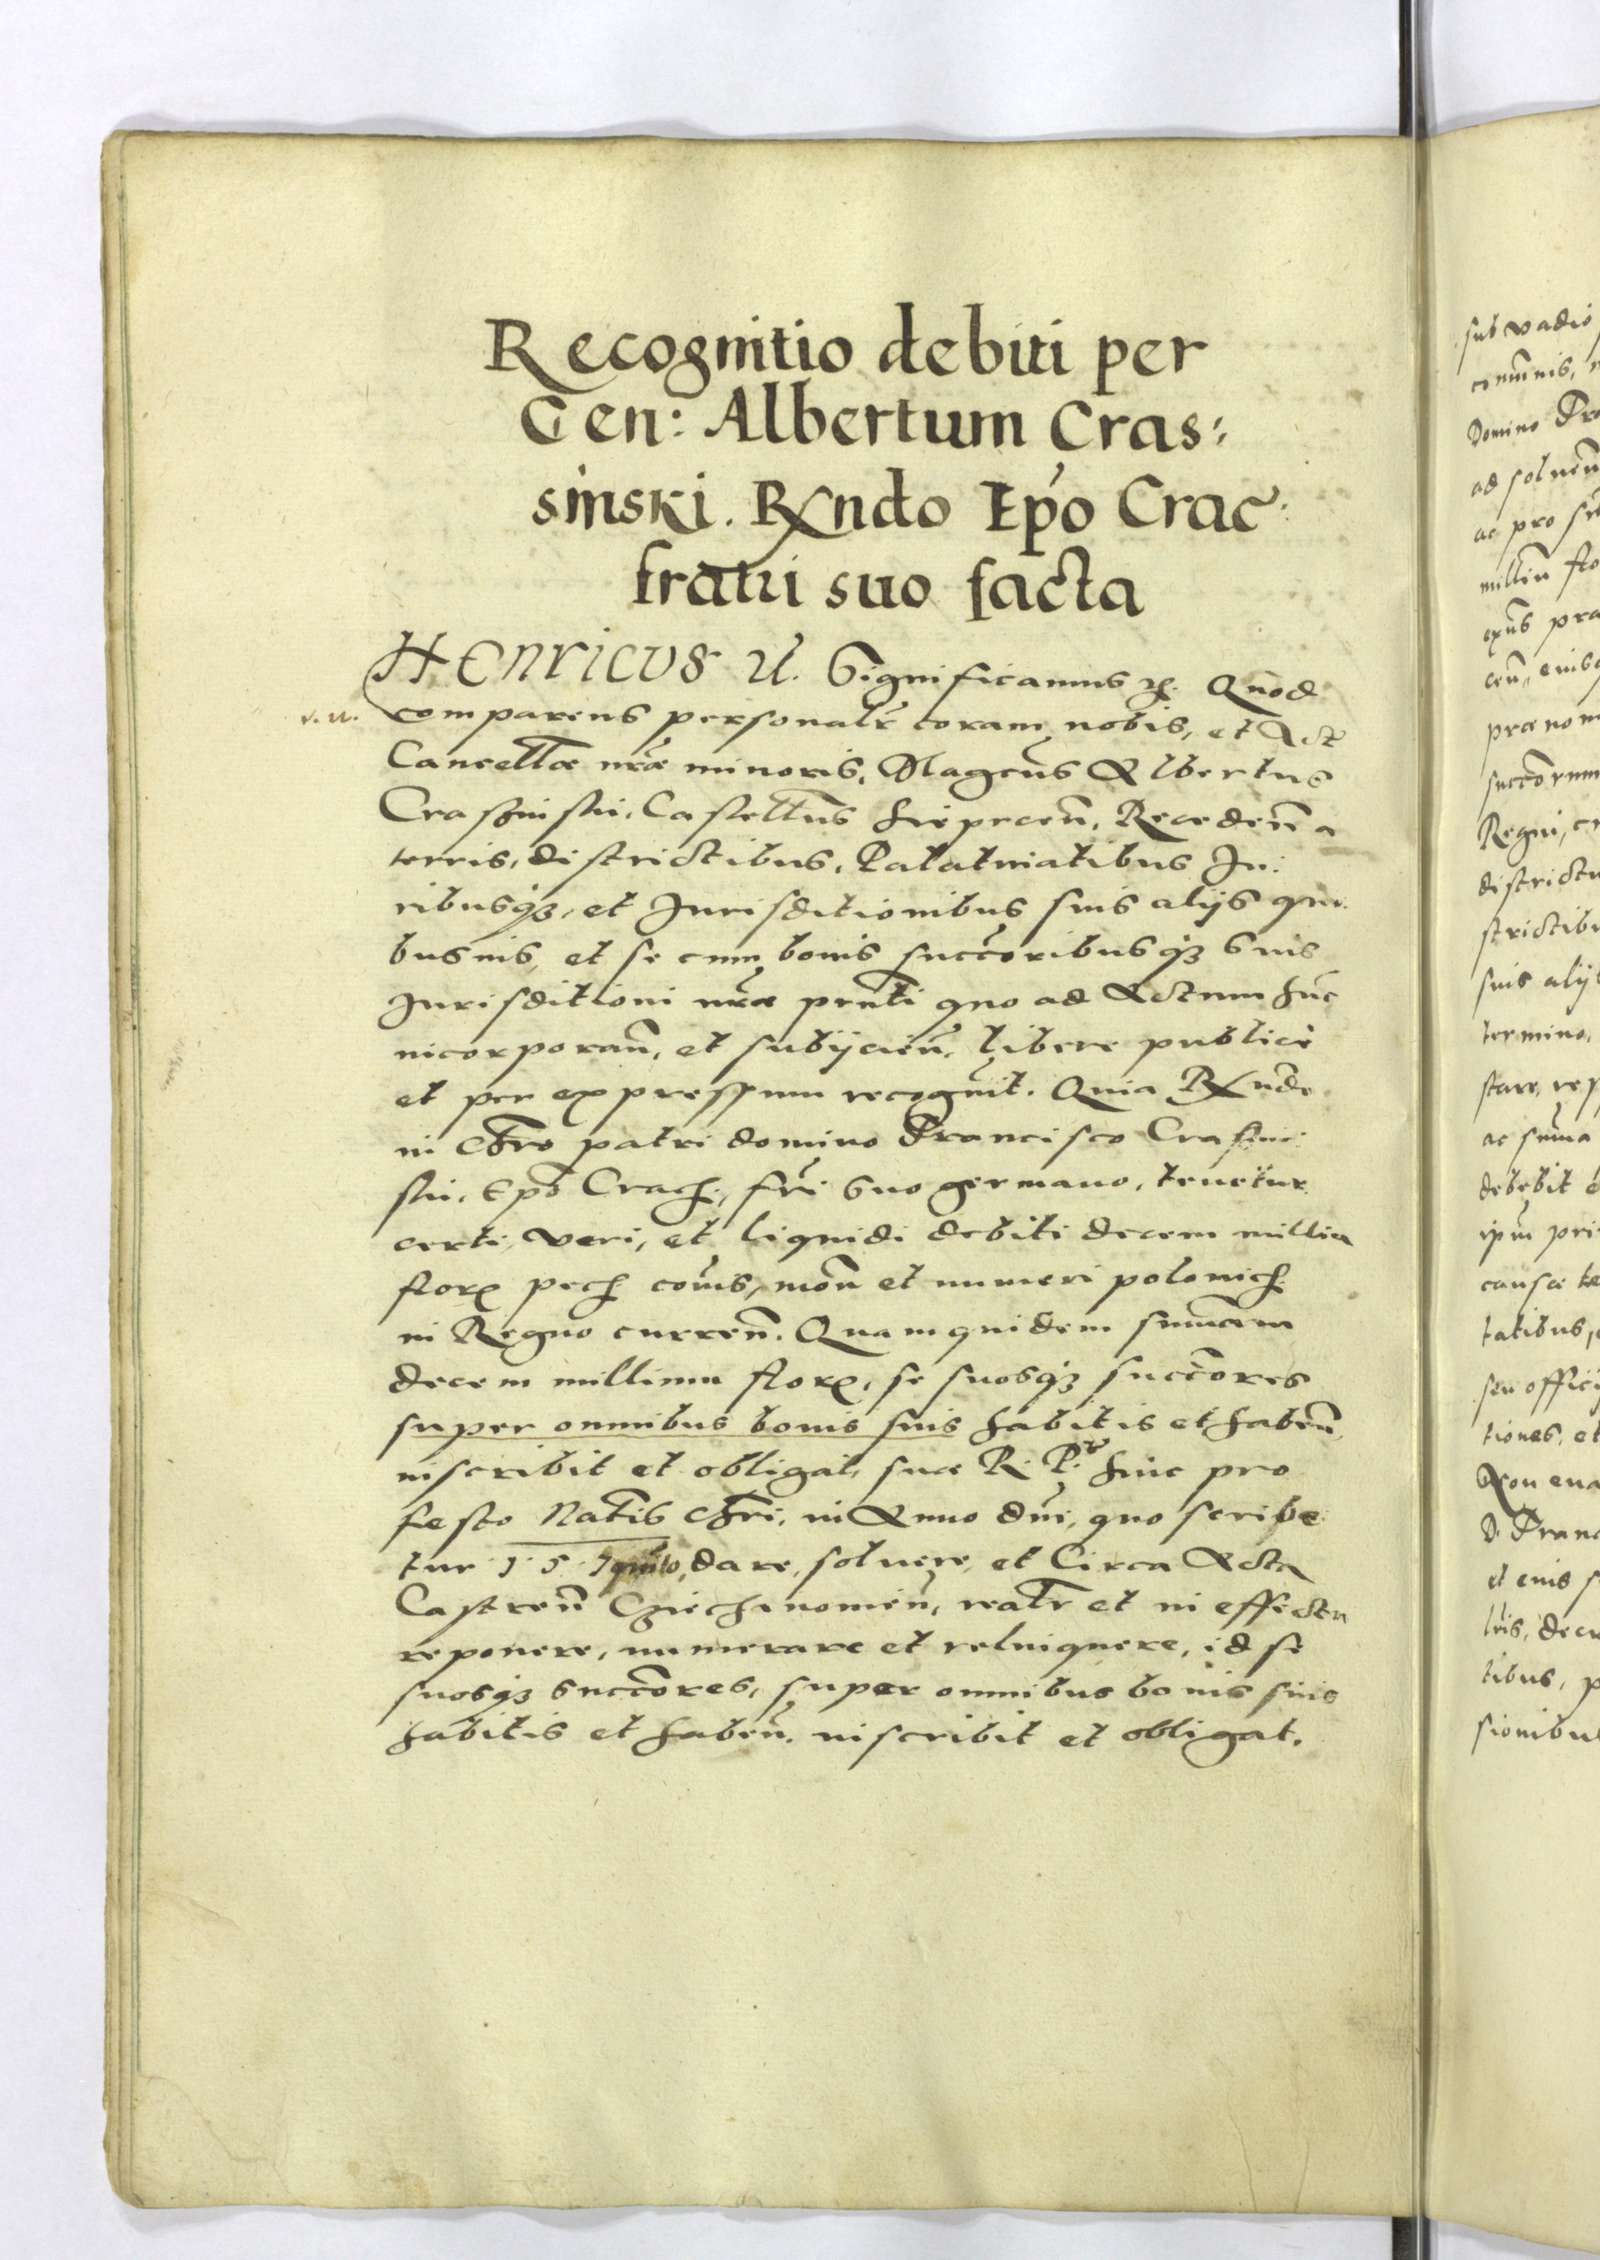 Recognitio debiti per
Gen: Albertum Cras:
sinski. Rndo Epo Crac:
fratri suo facta
HENRICVS
Significamus
Quod
v. u.
comparens personalr coram nobis, et Act
Cancellæ nræ minoris, Magcus Albertus
Crasinski, Castellus Sieprcen, Receden a
terris, districtibus, Palatinatibus Iu:
ribusq3, et Iurisditionibus suis alijs qui:
busuis, et se cum bonis succoribusq3 suis
Iurisditioni nræ pnti quo ad Actum hunc
incorporan, et subijcien, libere publicè
et per expressum recognit. Quia Rndo
in Chro patri domino Francisco Crasins:
ski, Epo Crac, fri suo germano, tenetur
certi, veri, et liquidi debiti decem millia
flor pec cois, mon et numeri polonic
in Regno curren. Quamquidem summam
decem millium flor, se suosq3 succores
super omnibus bonis suis habitis et haben
inscribit et obligat, suæ R. P. huic pro
festo Natis Chri, in Anno dni, quo scribe:
tur 1 5 7 dare, soluere, et Circa Acta
Castren Cziechanowien, realr et in effectu
reponere, numerare et relinquere, id se
suosq3 succores, super omnibus bonis suis
habitis et haben. inscribit et obligat.
sub vadio
Domino
ad soluen
ac pro
millium flo
præ nom
succorum
Regni,
districtu
strictibu
suis alijs
termino,
stare, rep
ac summa
debebit
ipm pri
causæ
tatibus,
seu officij
tiones, et
Non eua
D. Franc
et eius
tibus, p
sionibus